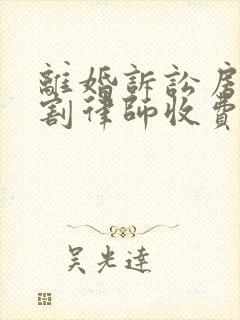 離婚訴訟房
割律師收費
吳光達